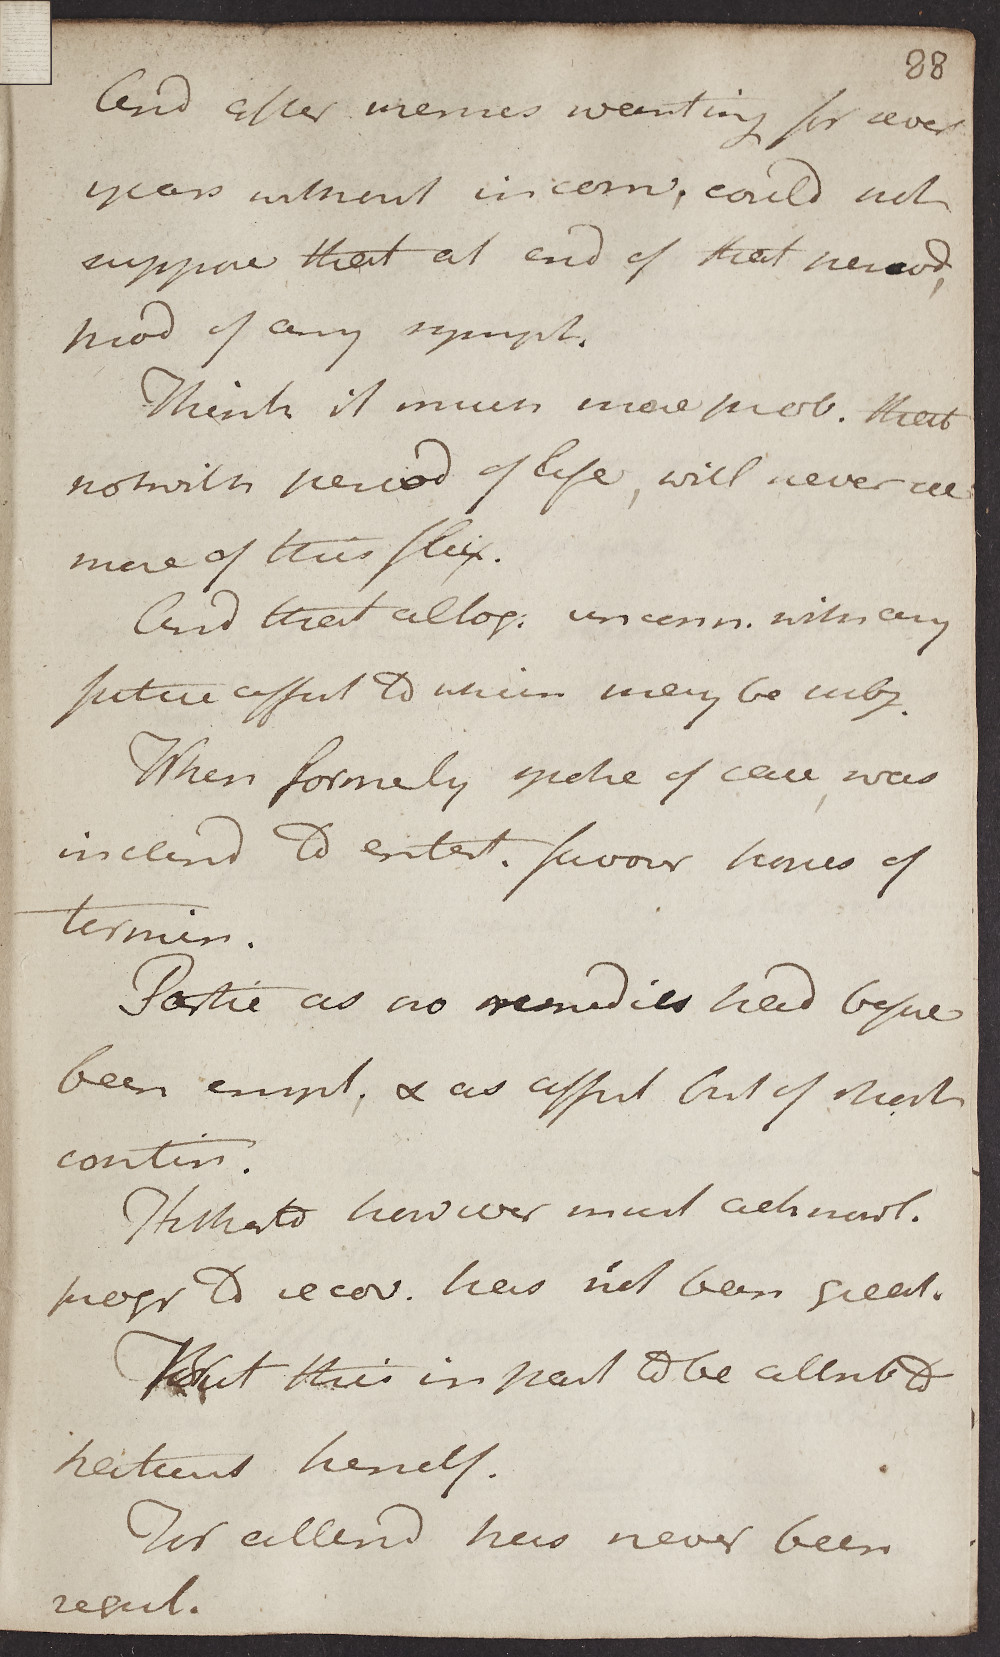 88
And after menses wanting for sever
years without inconv. could not
suppose that at end of that period,
prod of any sympt.
Think it much more prob. that
notwith period of life, will never see
more of this flux.
And that altog. unconn. with any
future affect to which may be subj.
When formerly spoke of case, was
inclind to entert. favour hopes of
termin.
Partic as no remedies had before
been empl. & as affect but of short
contin.
Hitherto however must acknowl.
progr to recov. has not been great.
But this in part to be attrib to
patient herself.
For attend has never been
regul.